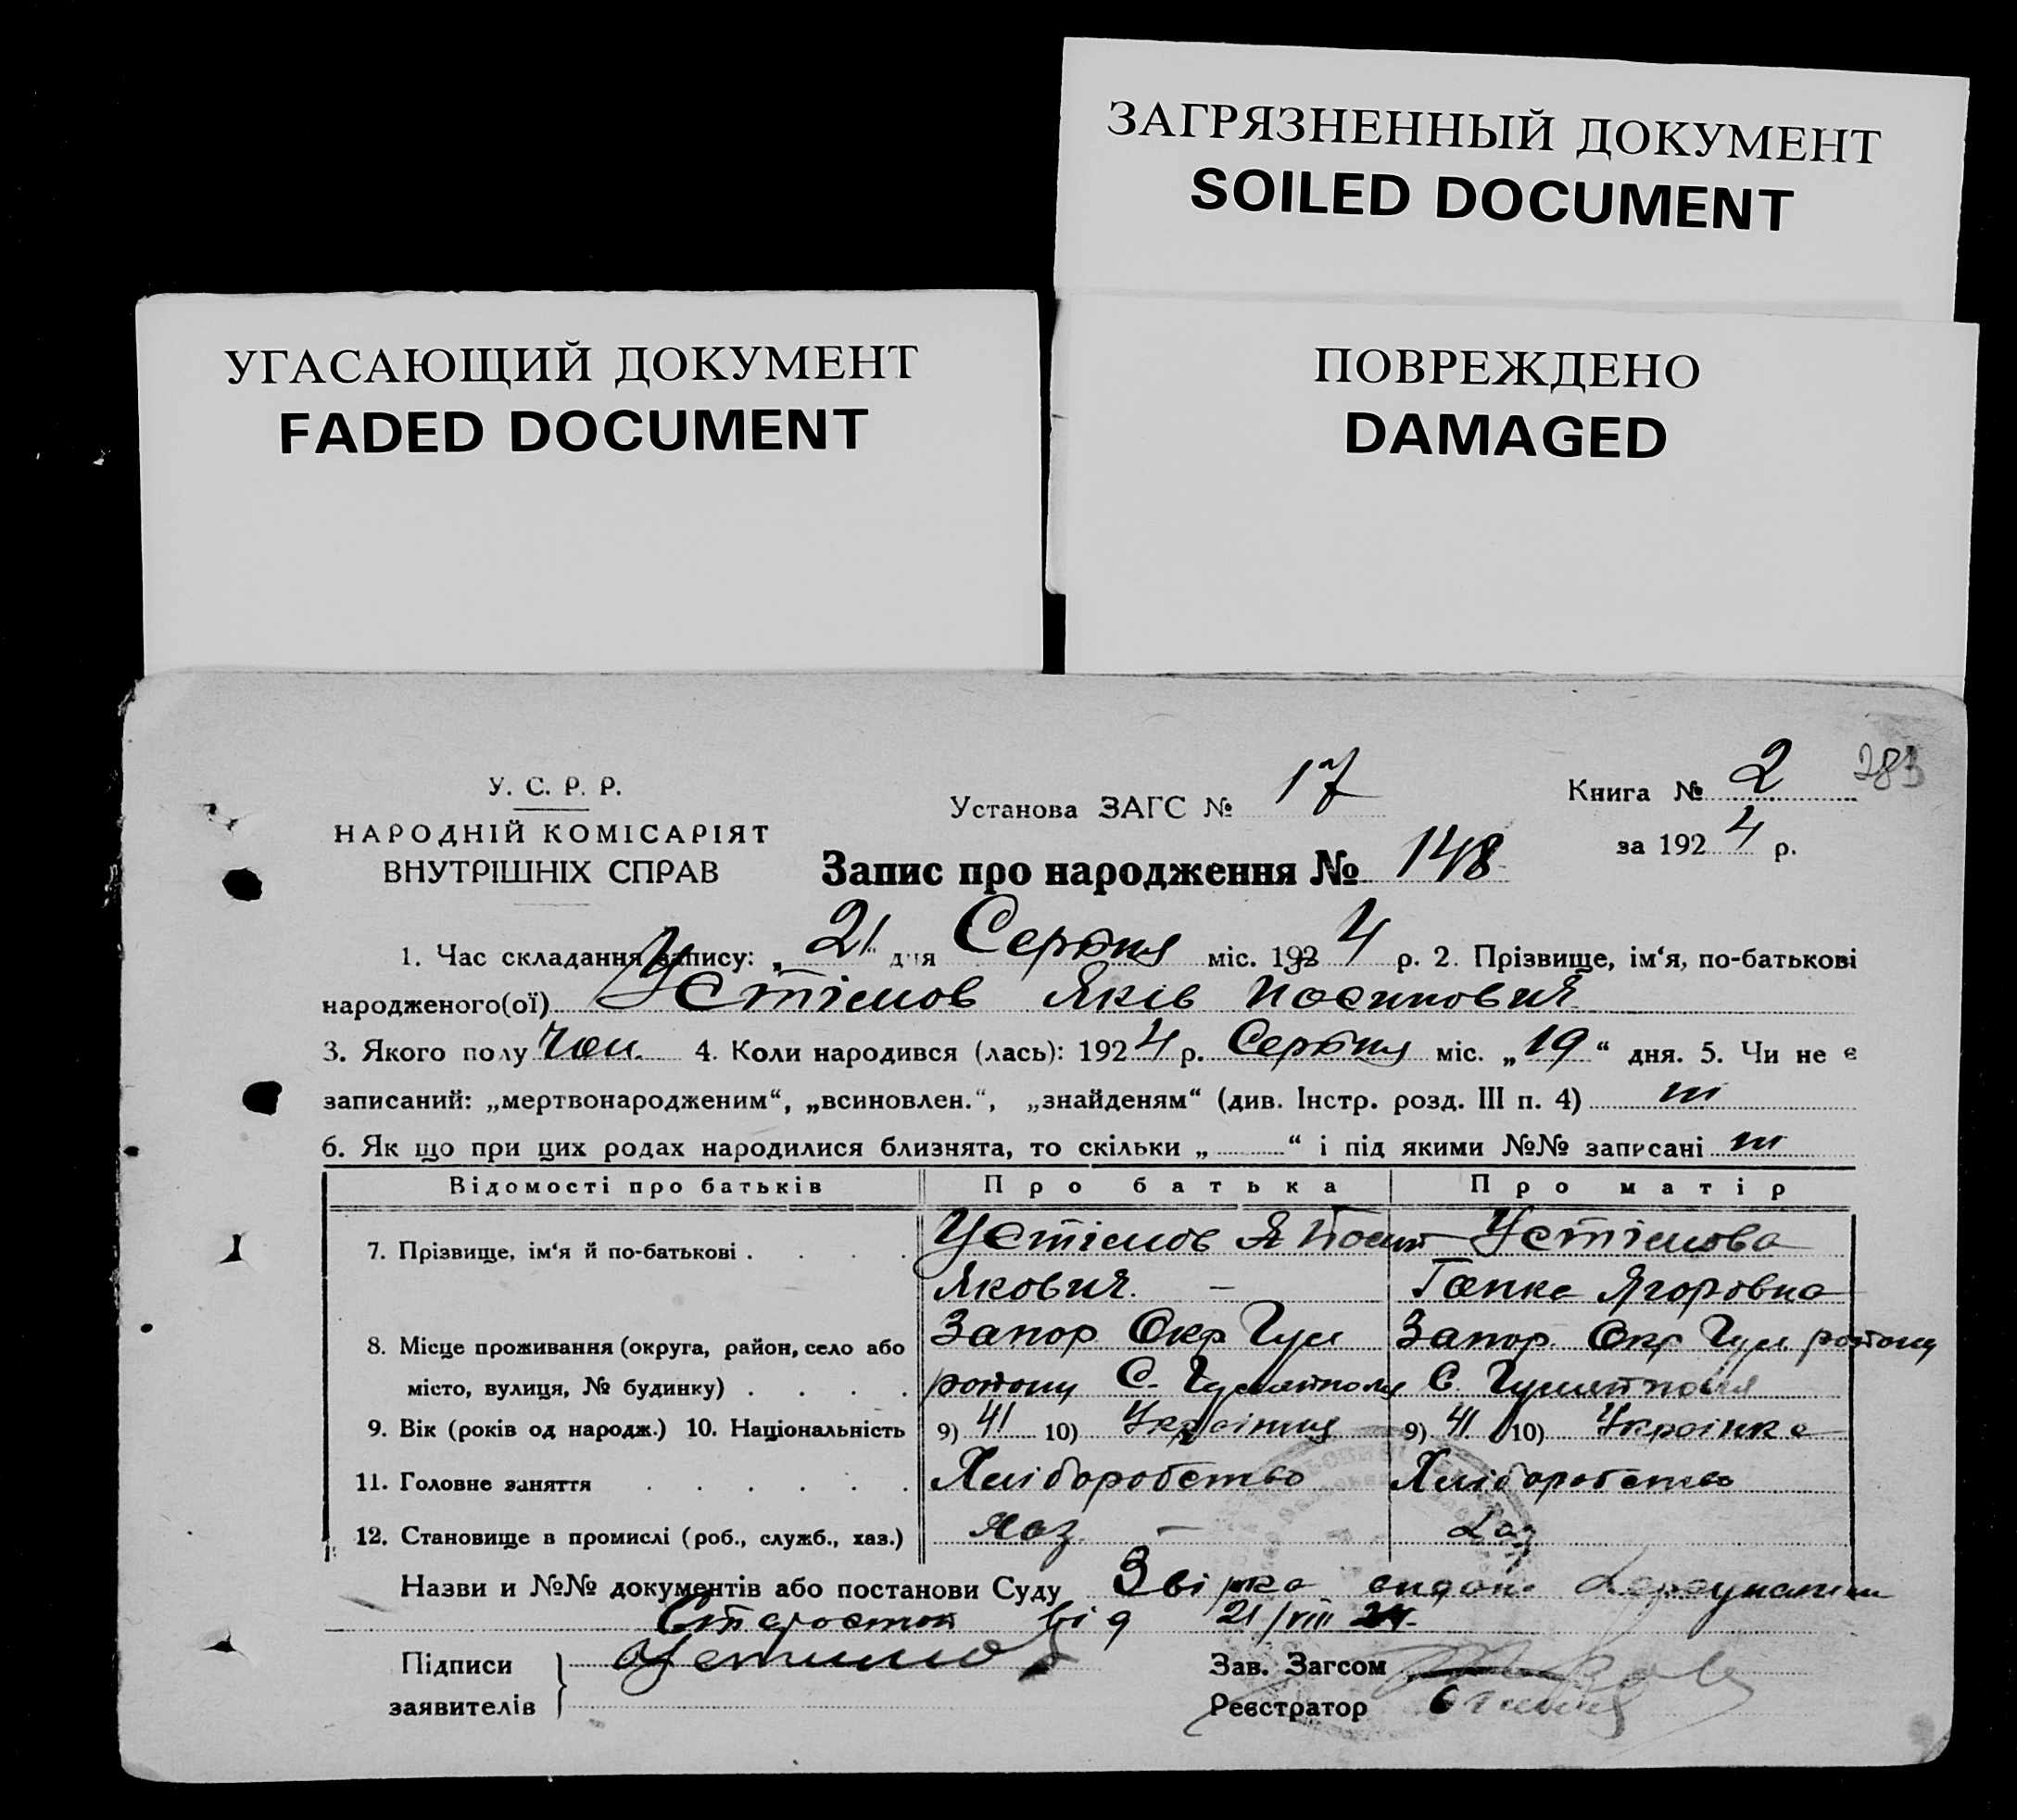 ЗАГРЯЗНЕННЫЙ ДОКУМЕНТ
SOILED DOCUMENT
УГАСАЮЩИЙ ДОКУМЕНТ
FADED DOCUMENT
ПОВРЕЖДЕНО
DAMAGED
У. С. Р. Р.
НАРОДНІЙ КОМІСАРІЯТ
ВНУТРІШНІХ СПРАВ
Установа ЗАГС № 17
Книга № 2 283
за 1924 р.
Запис про народження № 148
1. Час складання запису: „21“ дня Серпня міс. 1924 р. 2. Прізвище, ім‘я, по-батькові
народженого(ої) Устімов Яків Йосипович
3. Якого полу Чол. 4. Коли народився (лась): 1924 р. Серпня міс. „19“ дня. 5. Чи не є
записаний: „мертвонародженим“, „всиновлен.“, „знайденям“ (див. Інстр. розд. III п. 4) ні
6. Як що при цих родах народилися близнята, то скільки „ “ і під якими №№ записані ні
Відомості про батьків Про батька Про матір
7. Прізвище, ім‘я й по-батькові . . . . Устімов Йосип Устімова
Якович Гапка Ягоровна
8. Місце проживання (округа, район, село або Запор Окр Гул Запор. Окр Гул. району
місто, вулиця, № будинку) . . . . району С. Гуляйполя С. Гуляйполя
9. Вік (років од народж.) 10. Національність 9) 41 10) Українць 9) 41 10) Українка
11. Головне заняття . . . . . . Хліборобство Хліборобство
12. Становище в промислі (роб., служб., хаз.) Хаз. Хаз
Назви и №№ документів або постанови Суду видан.
від 21/VIII 24.
Підписи Устимов Зав. Загсом
заявителів Реєстратор